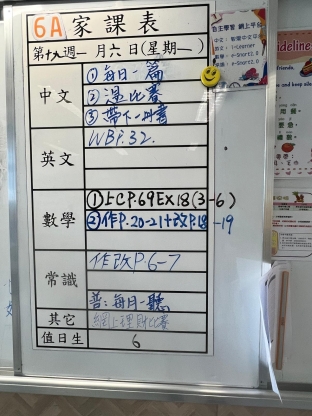 6A 家課表
第十八週 一月六日(星期一)
中文
① 每日一篇
② 温比賽
③ 帶下一冊書
英文
WB P.32.
數學
① 上C P.69 EX18(3-6)
② 作P.20-21+改P.18-19
常識
作改P.6-7
普:每日一聽
其它
網上理財比賽
值日生
6
自主學習 網上平台